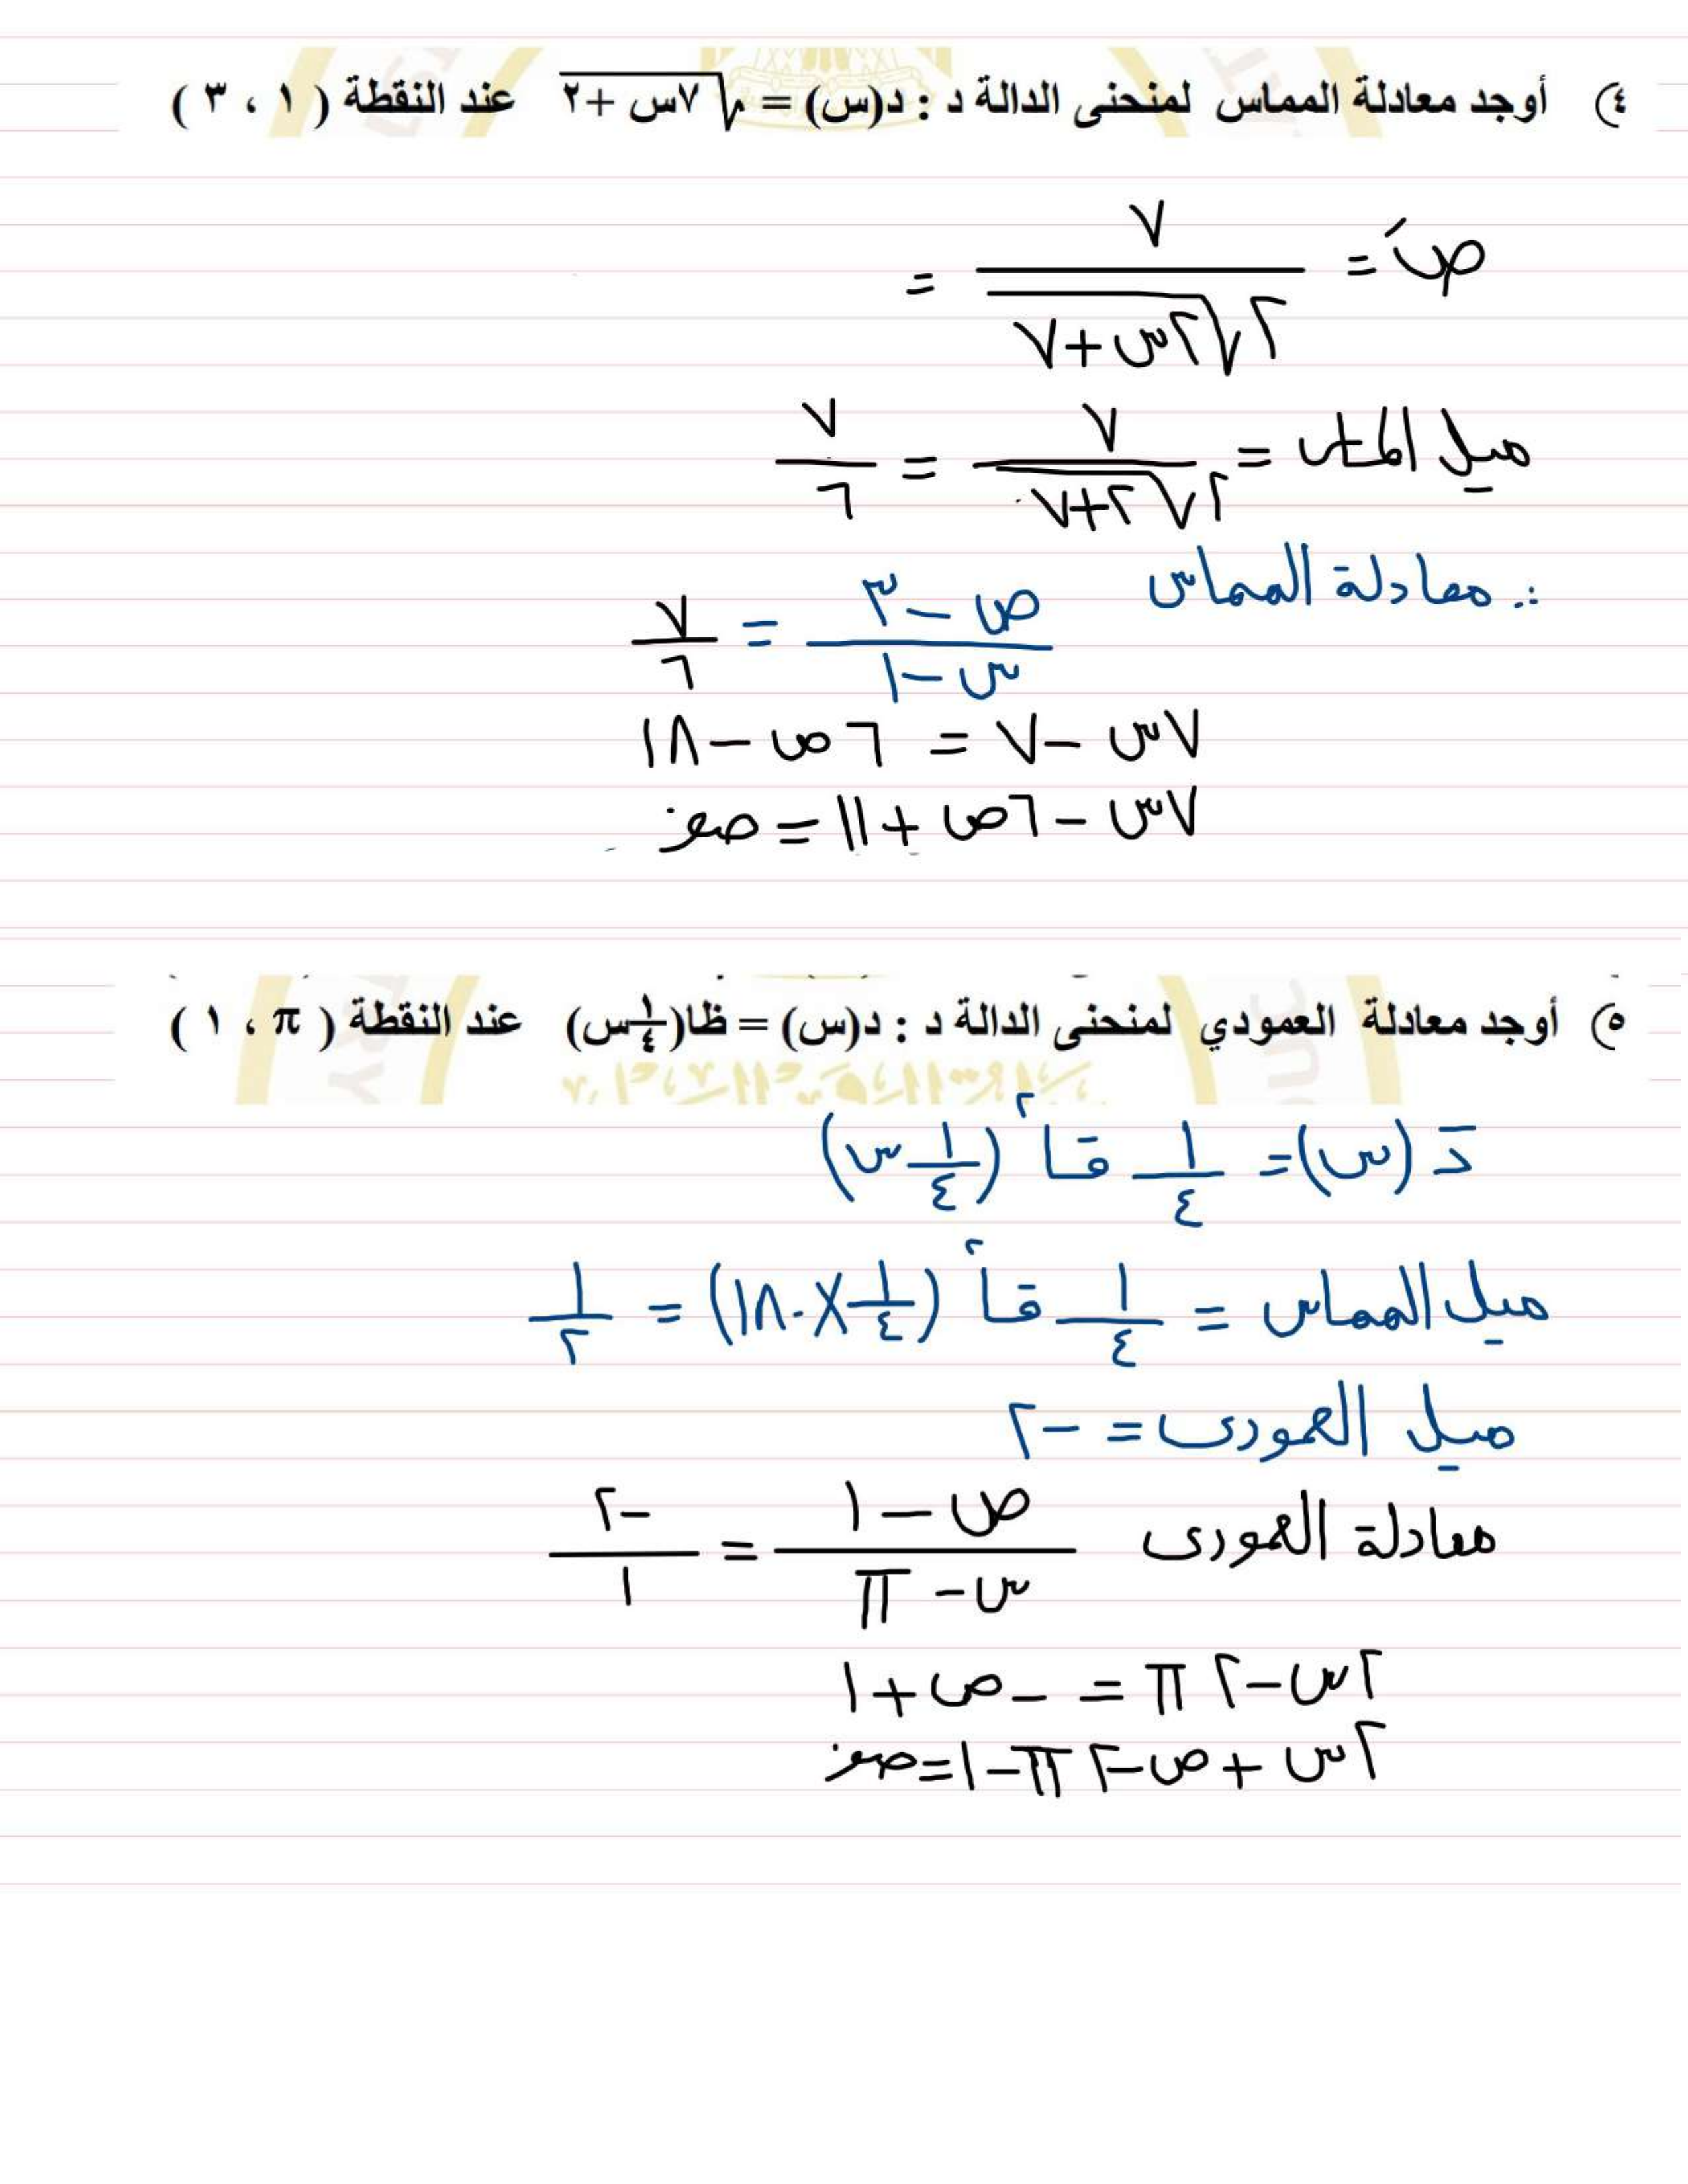 ٤) أوجد معادلة المماس لمنحنى الدالة د : د(س) = √(٧س + ٢) عند النقطة ( ١ ، ٣ )
صَ = ٧ / ٢√(٢س + ٧) =
ميل المماس = ٧ / ٢√(٢ + ٧) = ٧ / ٦
∴ معادلة المماس (ص - ٣) / (س - ١) = ٧ / ٦
٧س - ٧ = ٦ص - ١٨
٧س - ٦ص + ١١ = صفر
٥) أوجد معادلة العمودي لمنحنى الدالة د : د(س) = ظا(١/٤ س) عند النقطة ( π ، ١ )
دَ (س) = ١/٤ قا² (١/٤ س)
ميل المماس = ١/٤ قا² (١/٤ × ١٨٠) = ١/٢
ميل العمودى = -٢
معادلة العمودى (ص - ١) / (س - π) = -٢ / ١
٢س - ٢π = -ص + ١
٢س + ص - ٢π - ١ = صفر